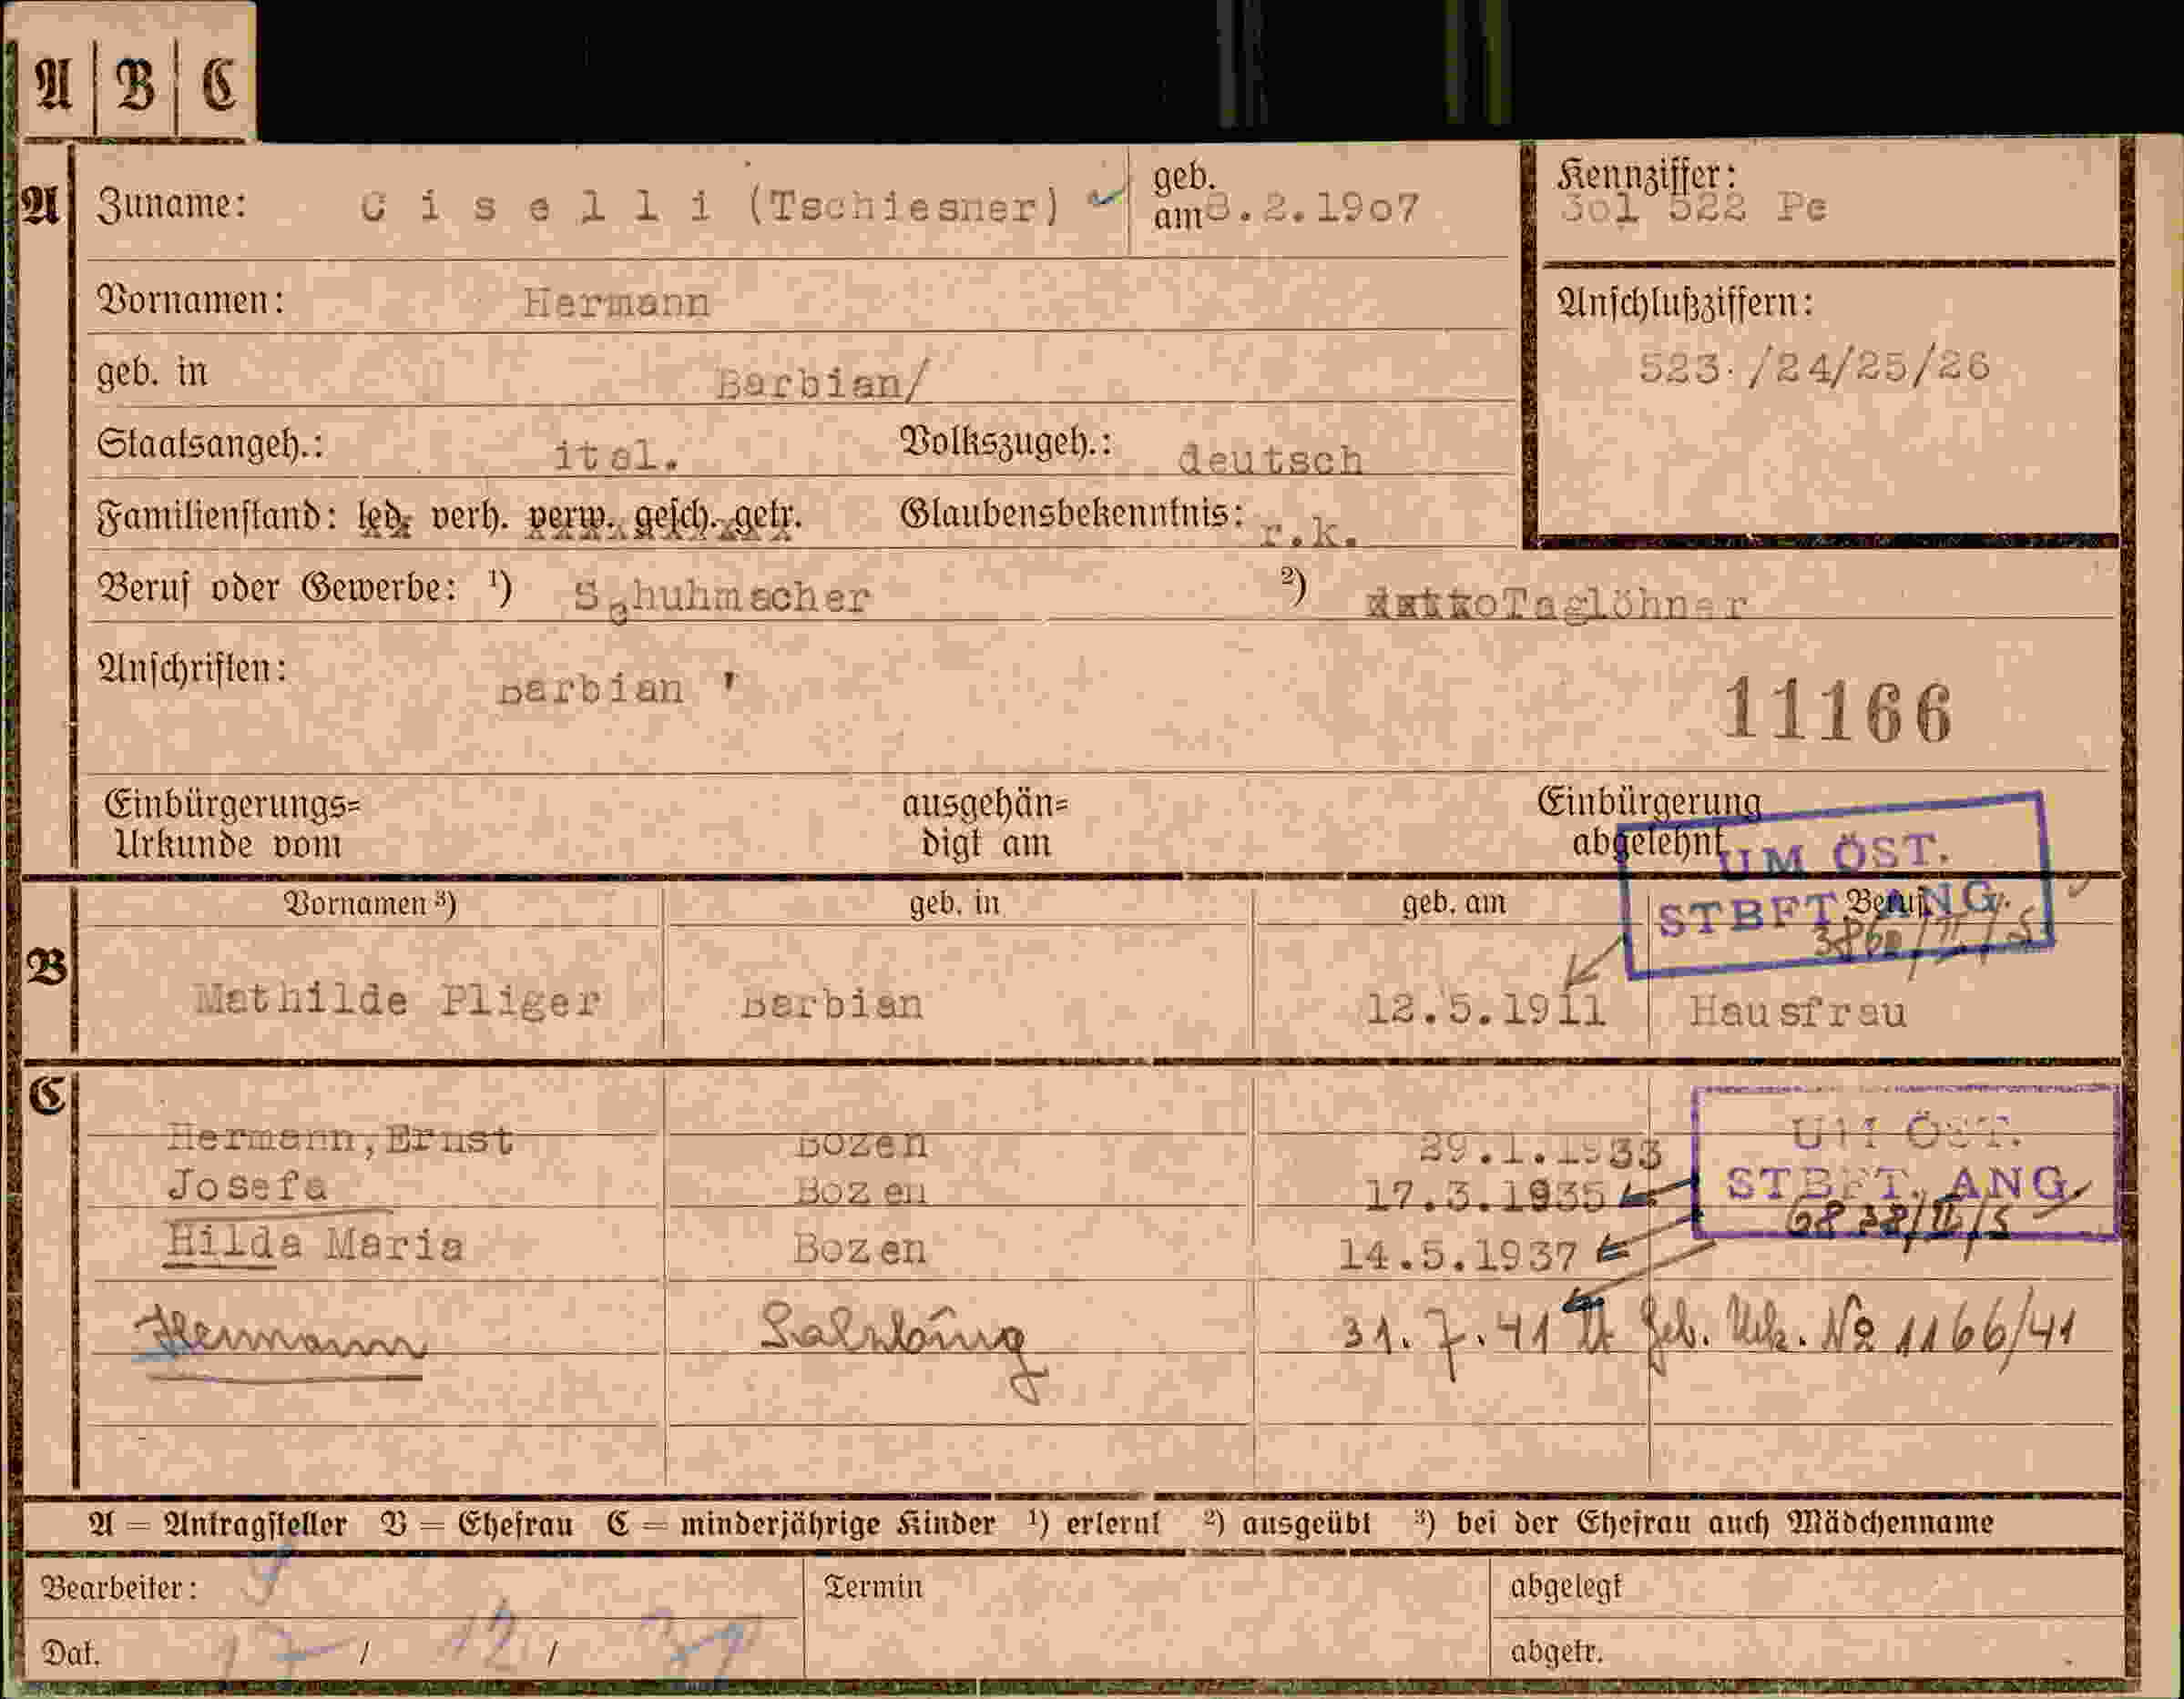 A B C
A Zuname: C i s e l l i (Tschiesner) geb. am 8.2.1907 Kennziffer: 301 522 Pe
Vornamen: Hermann Anschlußziffern:
geb. in Barbian/ 523./24/25/26
Staatsangeh.: ital. Volkszugeh.: deutsch
Familienstand: led. verh. verw. gesch. getr. Glaubensbekenntnis: r.k.
Beruf oder Gewerbe: 1) Schuhmacher 2) Taglöhner
Anschriften: Barbian
11166
Einbürgerungs= ausgehän= Einbürgerung
Urkunde vom digt am abgelehnt
UM ÖST.
STBFT. ANG.
Vornamen 3) geb. in geb. am Beruf
B Mathilde Pliger Barbian 12.5.1911 Hausfrau
C
UM ÖST.
Hermann, Ernst Bozen 29.1.1933
Josefa Bozen 17.3.1935 STBFT. ANG.
6838/II/5
Hilda Maria Bozen 14.5.1937
Hermann Salzburg 31.7.41 Geb. Urk. No 1166/41
A = Antragsteller B = Ehefrau C = minderjährige Kinder 1) erlernt 2) ausgeübt 3) bei der Ehefrau auch Mädchenname
Bearbeiter: Termin abgelegt
Dat. / 12 / abgetr.